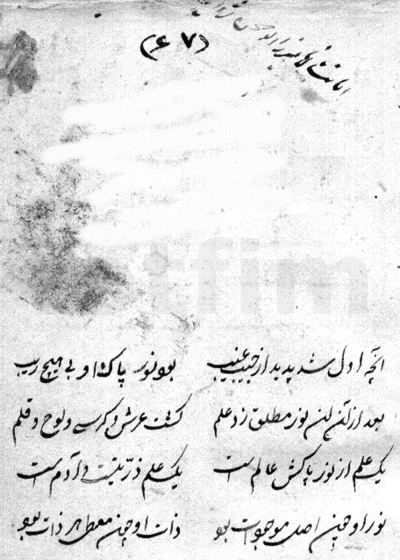 (۶۷)
آنچه اول شد پدید از جیب غیب
بود نور پاک او بی هیچ ریب
بعد از آن آن نور مطلق زد علم
گشت عرش و کرسی و لوح و قلم
یک علم از نور پاکش عالم است
یک علم ذریتست و آدم است
نور او چون اصل موجودات بود
ذات او چون معطی هر ذات بود